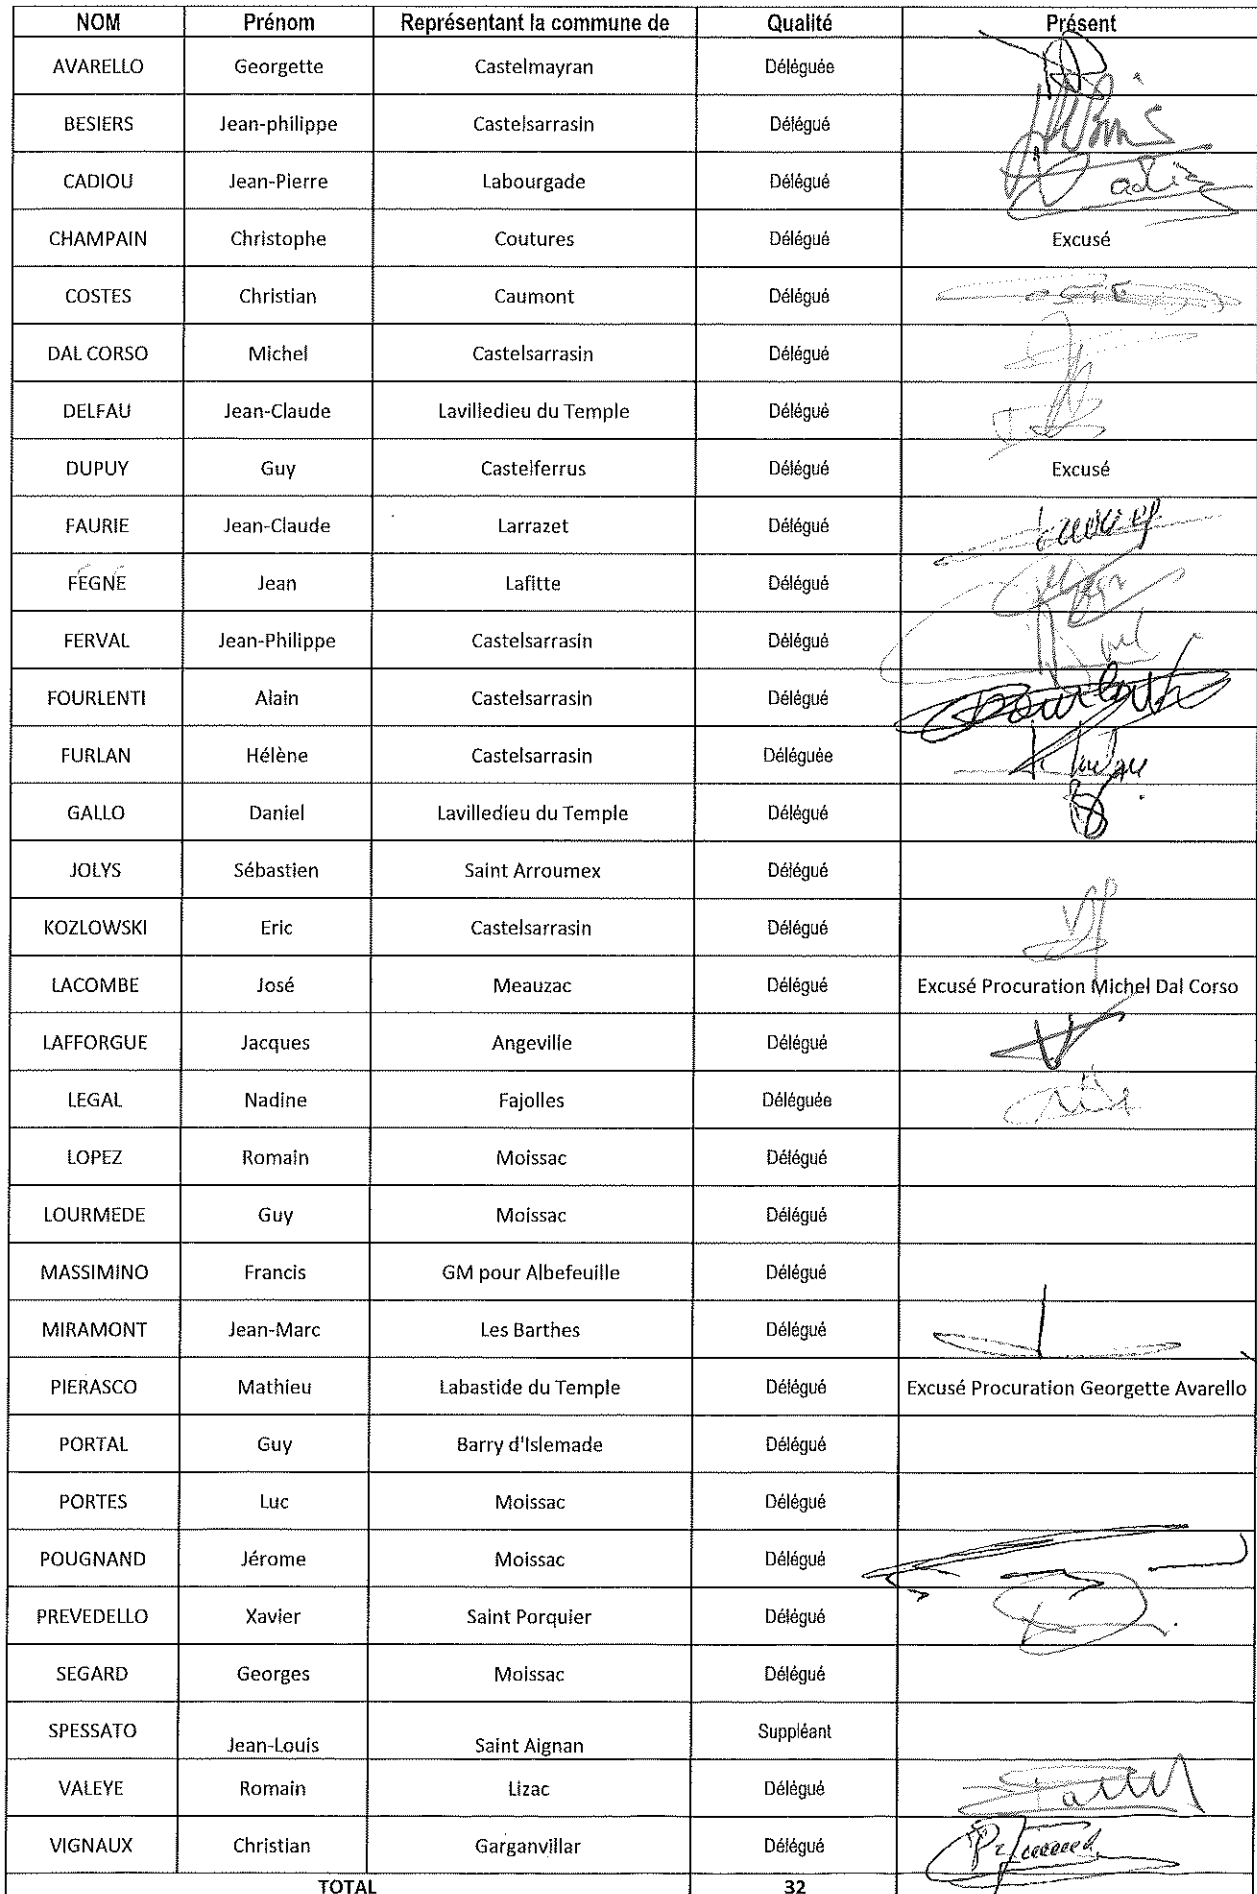 NOM Prénom Représentant la commune de Qualité Présent
AVARELLO Georgette Castelmayran Déléguée
BESIERS Jean-philippe Castelsarrasin Délégué
CADIOU Jean-Pierre Labourgade Délégué
CHAMPAIN Christophe Coutures Délégué Excusé
COSTES Christian Caumont Délégué
DAL CORSO Michel Castelsarrasin Délégué
DELFAU Jean-Claude Lavilledieu du Temple Délégué
DUPUY Guy Castelferrus Délégué Excusé
FAURIE Jean-Claude Larrazet Délégué
FÉGNÉ Jean Lafitte Délégué
FERVAL Jean-Philippe Castelsarrasin Délégué
FOURLENTI Alain Castelsarrasin Délégué
FURLAN Hélène Castelsarrasin Déléguée
GALLO Daniel Lavilledieu du Temple Délégué
JOLYS Sébastien Saint Arroumex Délégué
KOZLOWSKI Eric Castelsarrasin Délégué
LACOMBE José Meauzac Délégué Excusé Procuration Michel Dal Corso
LAFFORGUE Jacques Angeville Délégué
LEGAL Nadine Fajolles Déléguée
LOPEZ Romain Moissac Délégué
LOURMEDE Guy Moissac Délégué
MASSIMINO Francis GM pour Albefeuille Délégué
MIRAMONT Jean-Marc Les Barthes Délégué
PIERASCO Mathieu Labastide du Temple Délégué Excusé Procuration Georgette Avarello
PORTAL Guy Barry d'Islemade Délégué
PORTES Luc Moissac Délégué
POUGNAND Jérome Moissac Délégué
PREVEDELLO Xavier Saint Porquier Délégué
SEGARD Georges Moissac Délégué
SPESSATO Jean-Louis Saint Aignan Suppléant
VALEYE Romain Lizac Délégué
VIGNAUX Christian Garganvillar Délégué
TOTAL 32